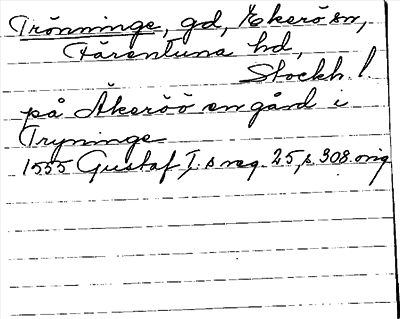 Trönninge, gd, Ekerö sn,
Färentuna hd,
Stockh. l.
på Åkeröö en gård i
Tryninge
1555 Gustaf I.s reg. 25, s. 308. orig